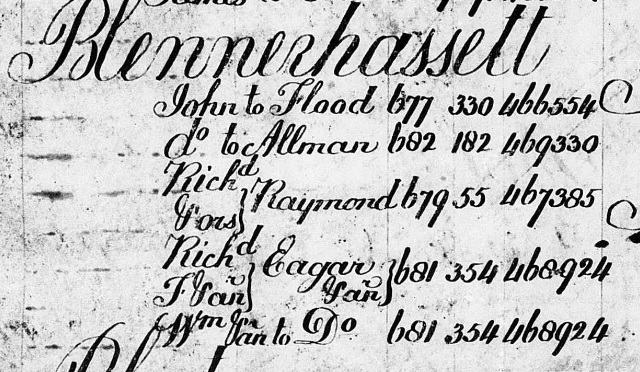 Blennerhassett
John to Flood 677 330 466554
do to Allman 682 182 469330
Richd
Vors } Raymond 679 55 467385
Richd } Eagar
} 681 354 468924
Wm to Do 681 354 468924